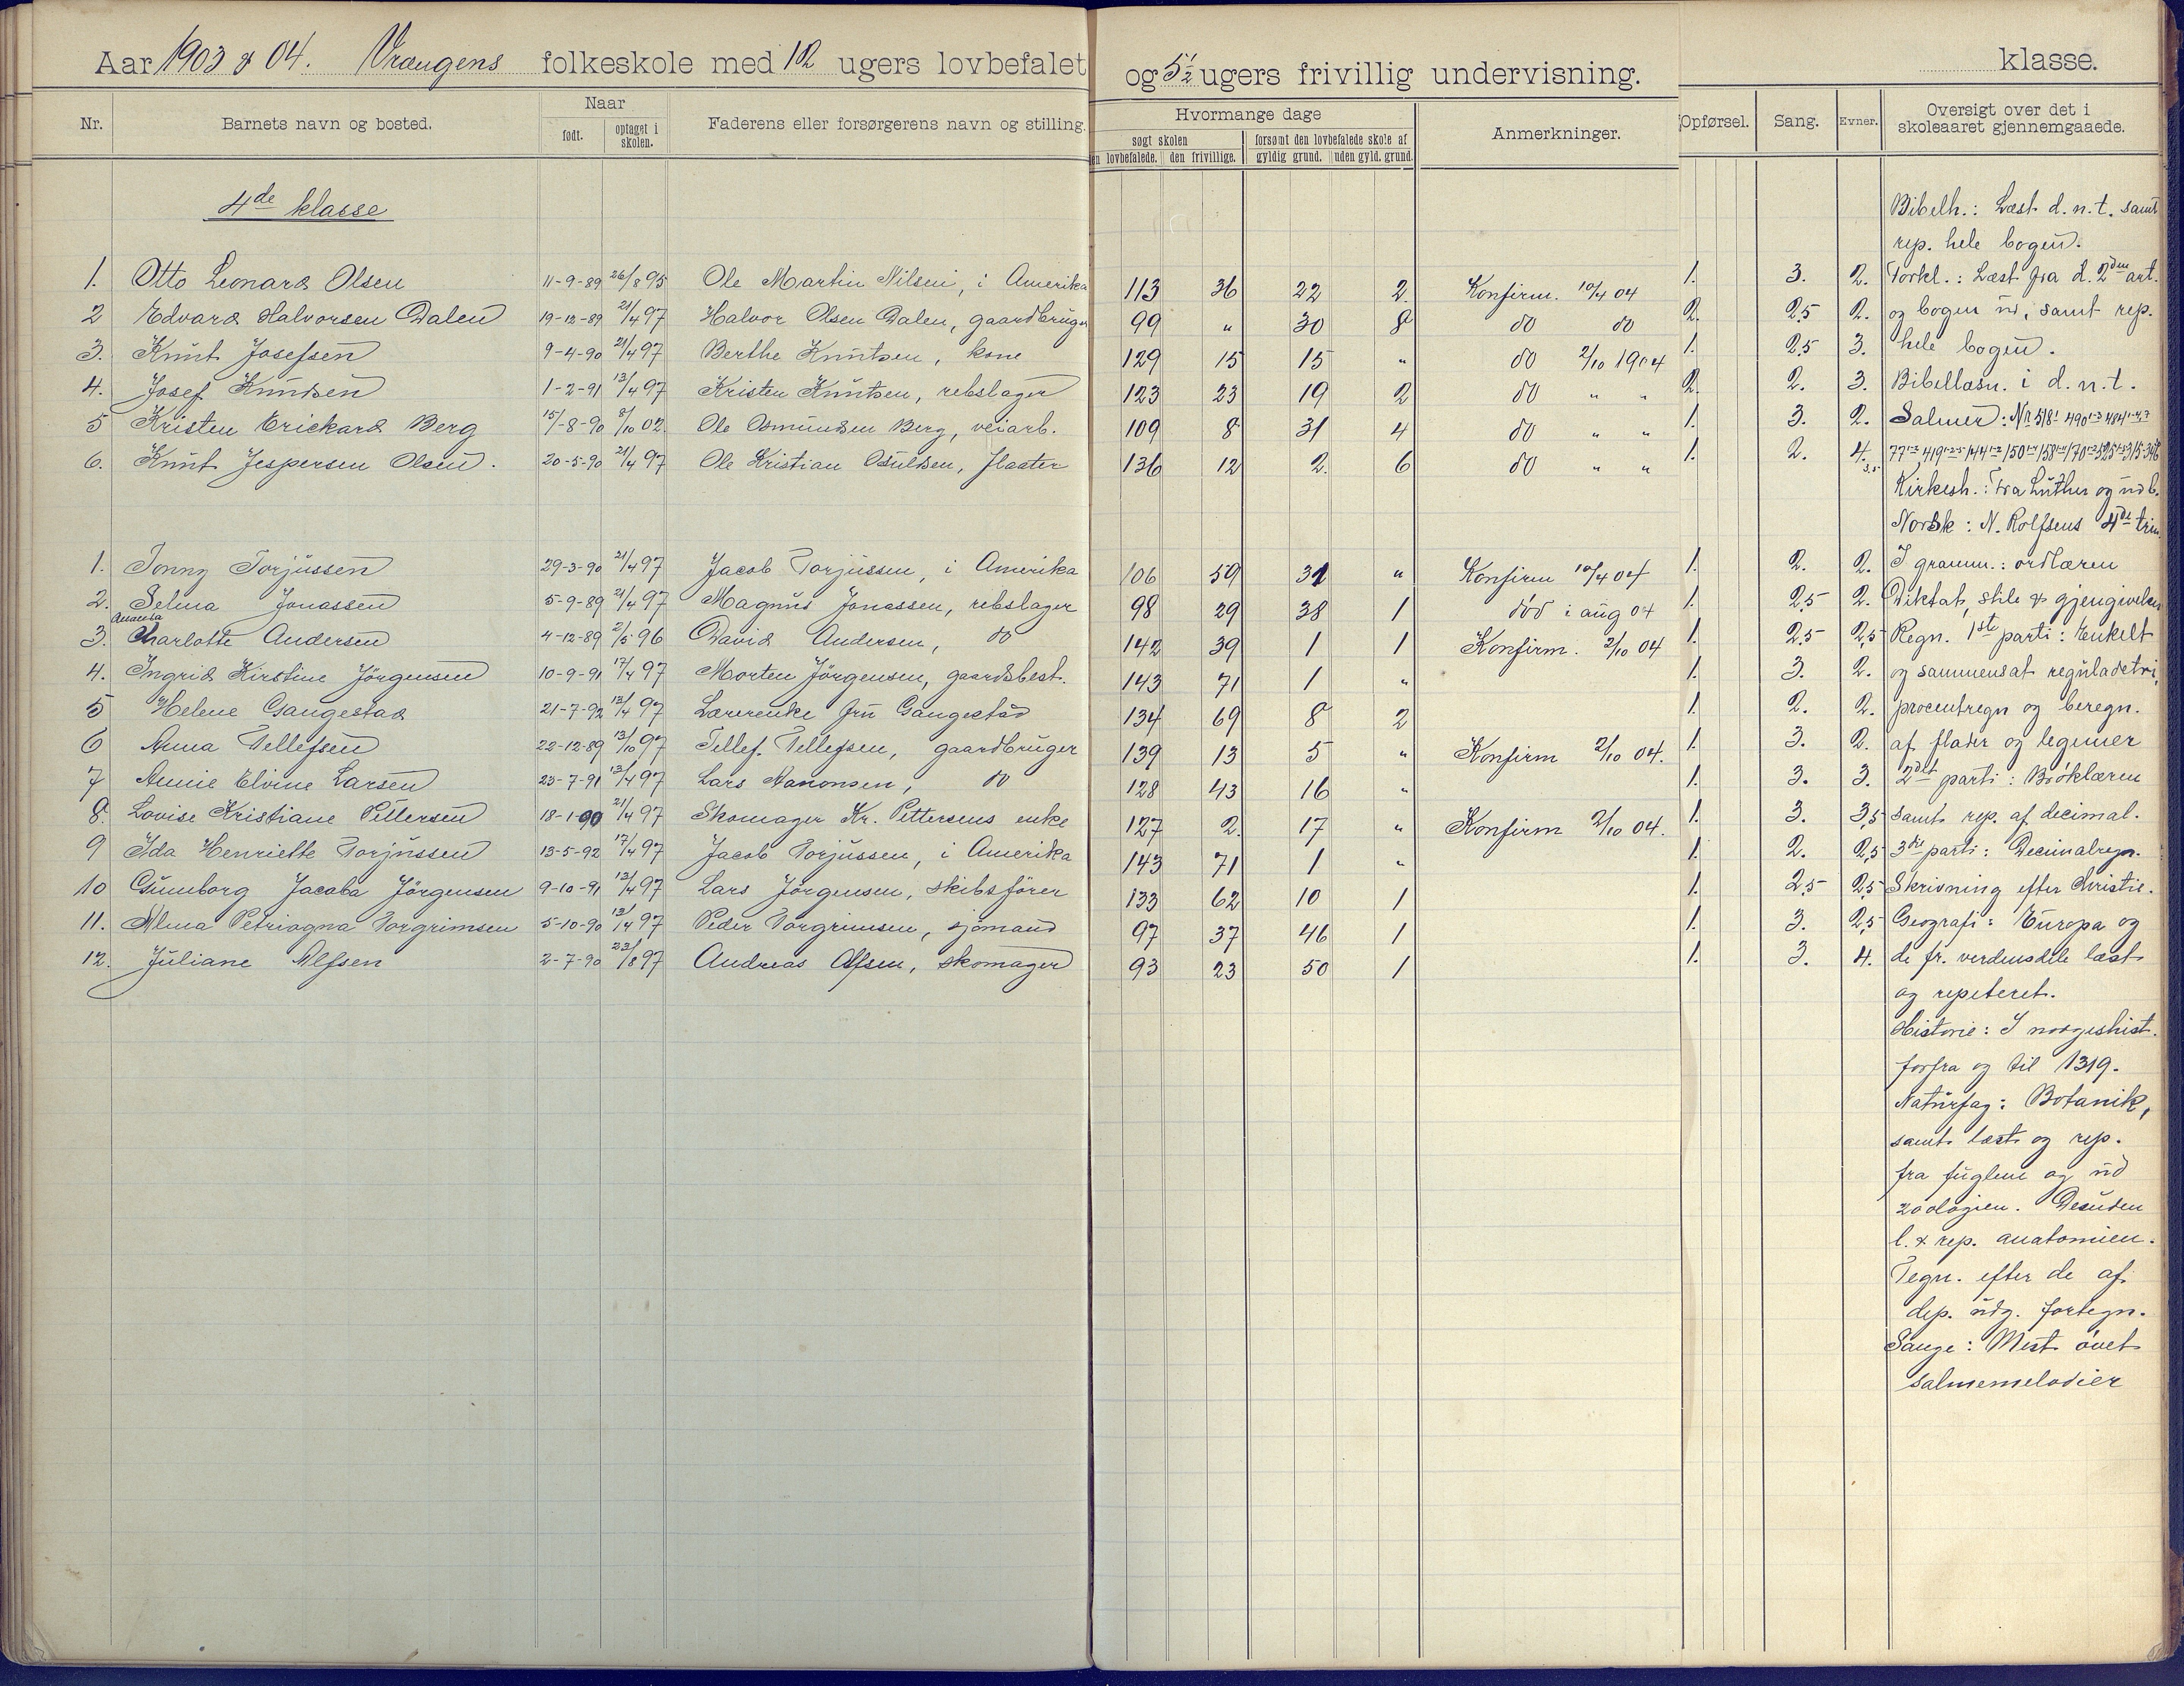 Aar 1903 & 04. Vrængens folkeskole med 12 ugers lovbefalet og 5½ ugers frivillig undervisning. klasse.
Nr. Barnets navn og bosted. Naar født. optaget i skolen. Faderens eller forsørgerens navn og stilling. Hvormange dage søgt skolen den lovbefalede. den frivillige. forsømt den lovbefalede skole af gyldig grund. uden gyld. grund. Anmerkninger. Opførsel. Sang. Evner. Oversigt over det i skoleaaret gjennemgaaede.
4de klasse
1. Otto Leonard Olsen 11-9-89 26/8 95 Ole Martin Nilsen, i Amerika 113 36 22 2. Konfirm. 10/4 04 1. 3. 2.
2 Edvard Halvorsen Dalen 19-12-89 21/4 97 Halvor Olsen Dalen, gaardbruger 99 " 30 8 do do 2. 2,5 2.
3. Knut Josefsen 9-4-90 21/4 97 Berthe Knutsen, kone 129 15 15 " do 2/10 1904 1. 2,5 3.
4. Josef Knudsen 1-2-91 13/4 97 Kristen Knutsen, rebslager 123 23 19 2 do " " 2. 2. 3.
5 Kristen Erickard Berg 15/-8-90 8/10 02. Ole Osmundsen Berg, veiarb. 109 8 31 4 do " " 1. 3. 2.
6. Knut Jespersen Olsen. 20-5-90 21/4 97 Ole Kristian Osuldsen, flaater 136 12 2. 6 do " " 1. 2. 4. 3,5
1. Jonny Torjussen 29-3-90 21/4 97 Jacob Torjussen, i Amerika 106 59 31 " Konfirm 10/4 04 1. 2. 2.
2. Selma Jonassen 5-9-89 21/4 97 Magnus Jonassen, rebslager 98 29 38 1 død i aug 04 1. 2,5 2.
3. Charlotte Andersen 4-12-89 2/5 96 David Andersen, do 142 39 1 1 Konfirm. 2/10 04 1. 2,5 2,5
4. Ingrid Kirstine Jörgensen 10-9-91 17/4 97 Morten Jörgensen, gaardsbest. 143 71 1 " 1. 3. 2.
5 Helene Gangestad 21-7-92 13/4 97 Lærerenke fru Gangestad 134 69 8 2 1. 2. 2.
6 Anna Tellefsen 22-12-89 13/10 97 Tellef. Tellefsen, gaardbruger 139 13 5 " Konfirm 2/10 04. 1. 3. 2.
7 Annie Elvine Larsen 23-7-91 13/4 97 Lars Aanonsen, do 128 43 16 " 1. 3. 3.
8. Lovise Kristiane Pettersen 18-1-90 21/4 97 Skomager Kr. Pettersens enke 127 2. 17 " Konfirm 2/10 04. 1. 3. 3,5
9 Ida Henriette Torjussen 13-5-92 17/4 97 Jacob Torjussen, i Amerika 143 71 1 " 1. 2. 2,5
10 Gunnborg Jacoba Jörgensen 9-10-91 13/4 97 Lars Jörgensen, skibsförer 133 62 10 1 1. 2,5 2,5
11. Alma Petriagna Torgrimsen 5-10-90 13/4 97 Peder Torgrimsen, sjömand 97 37 46 1 1. 3. 2,5
12. Juliane Alfsen 2-7-90 23/8 97 Andreas Alfsen, skomager 93 23 50 1 1. 3. 4.
Bibelh.: Læst d. n. t. samt
rep. hele bogen.
Forkl.: Læst fra d. 2den art.
og bogen ud, samt rep.
hele bogen.
Bibellæsn. i d. n. t.
Salmer: Nr 518
Kirkesh.: Fra Luther og ud b.
Norsk: N. Rolfsens 4de trin
I gramm.: ordlæren
Diktat, stile & gjengivelser
Regn. 1ste parti: Enkelt
og sammensat reguladetri,
procentregn og beregn.
af flader og legemer
2det parti: Bröklæren
samt rep. af decimal.
3die parti: Decimalregn.
Skrivning efter Christie.
Geografi: Europa og
de fr. verdensdele læst
og repeteret.
Historie: I norgeshist.
forfra og til 1319.
Naturfag: Botanik,
samt læst og rep.
fra fuglene og ud
zoologien. Desuden
l. & rep. anatomien.
Tegn. efter de af
dep. udg. fortegn.
Sange: Mest övet
salmemelodier